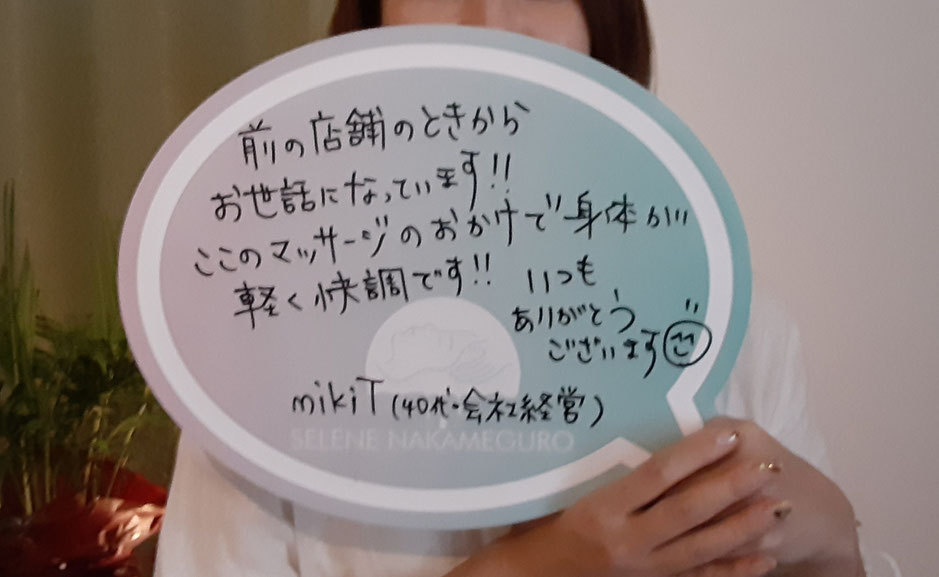 前の店舗のときから
お世話になっています!!
ここのマッサージのおかげで身体が
軽く快調です!! いつも
ありがとう
ございます
mikiT(40代・会社経営)
SELENE NAKAMEGURO